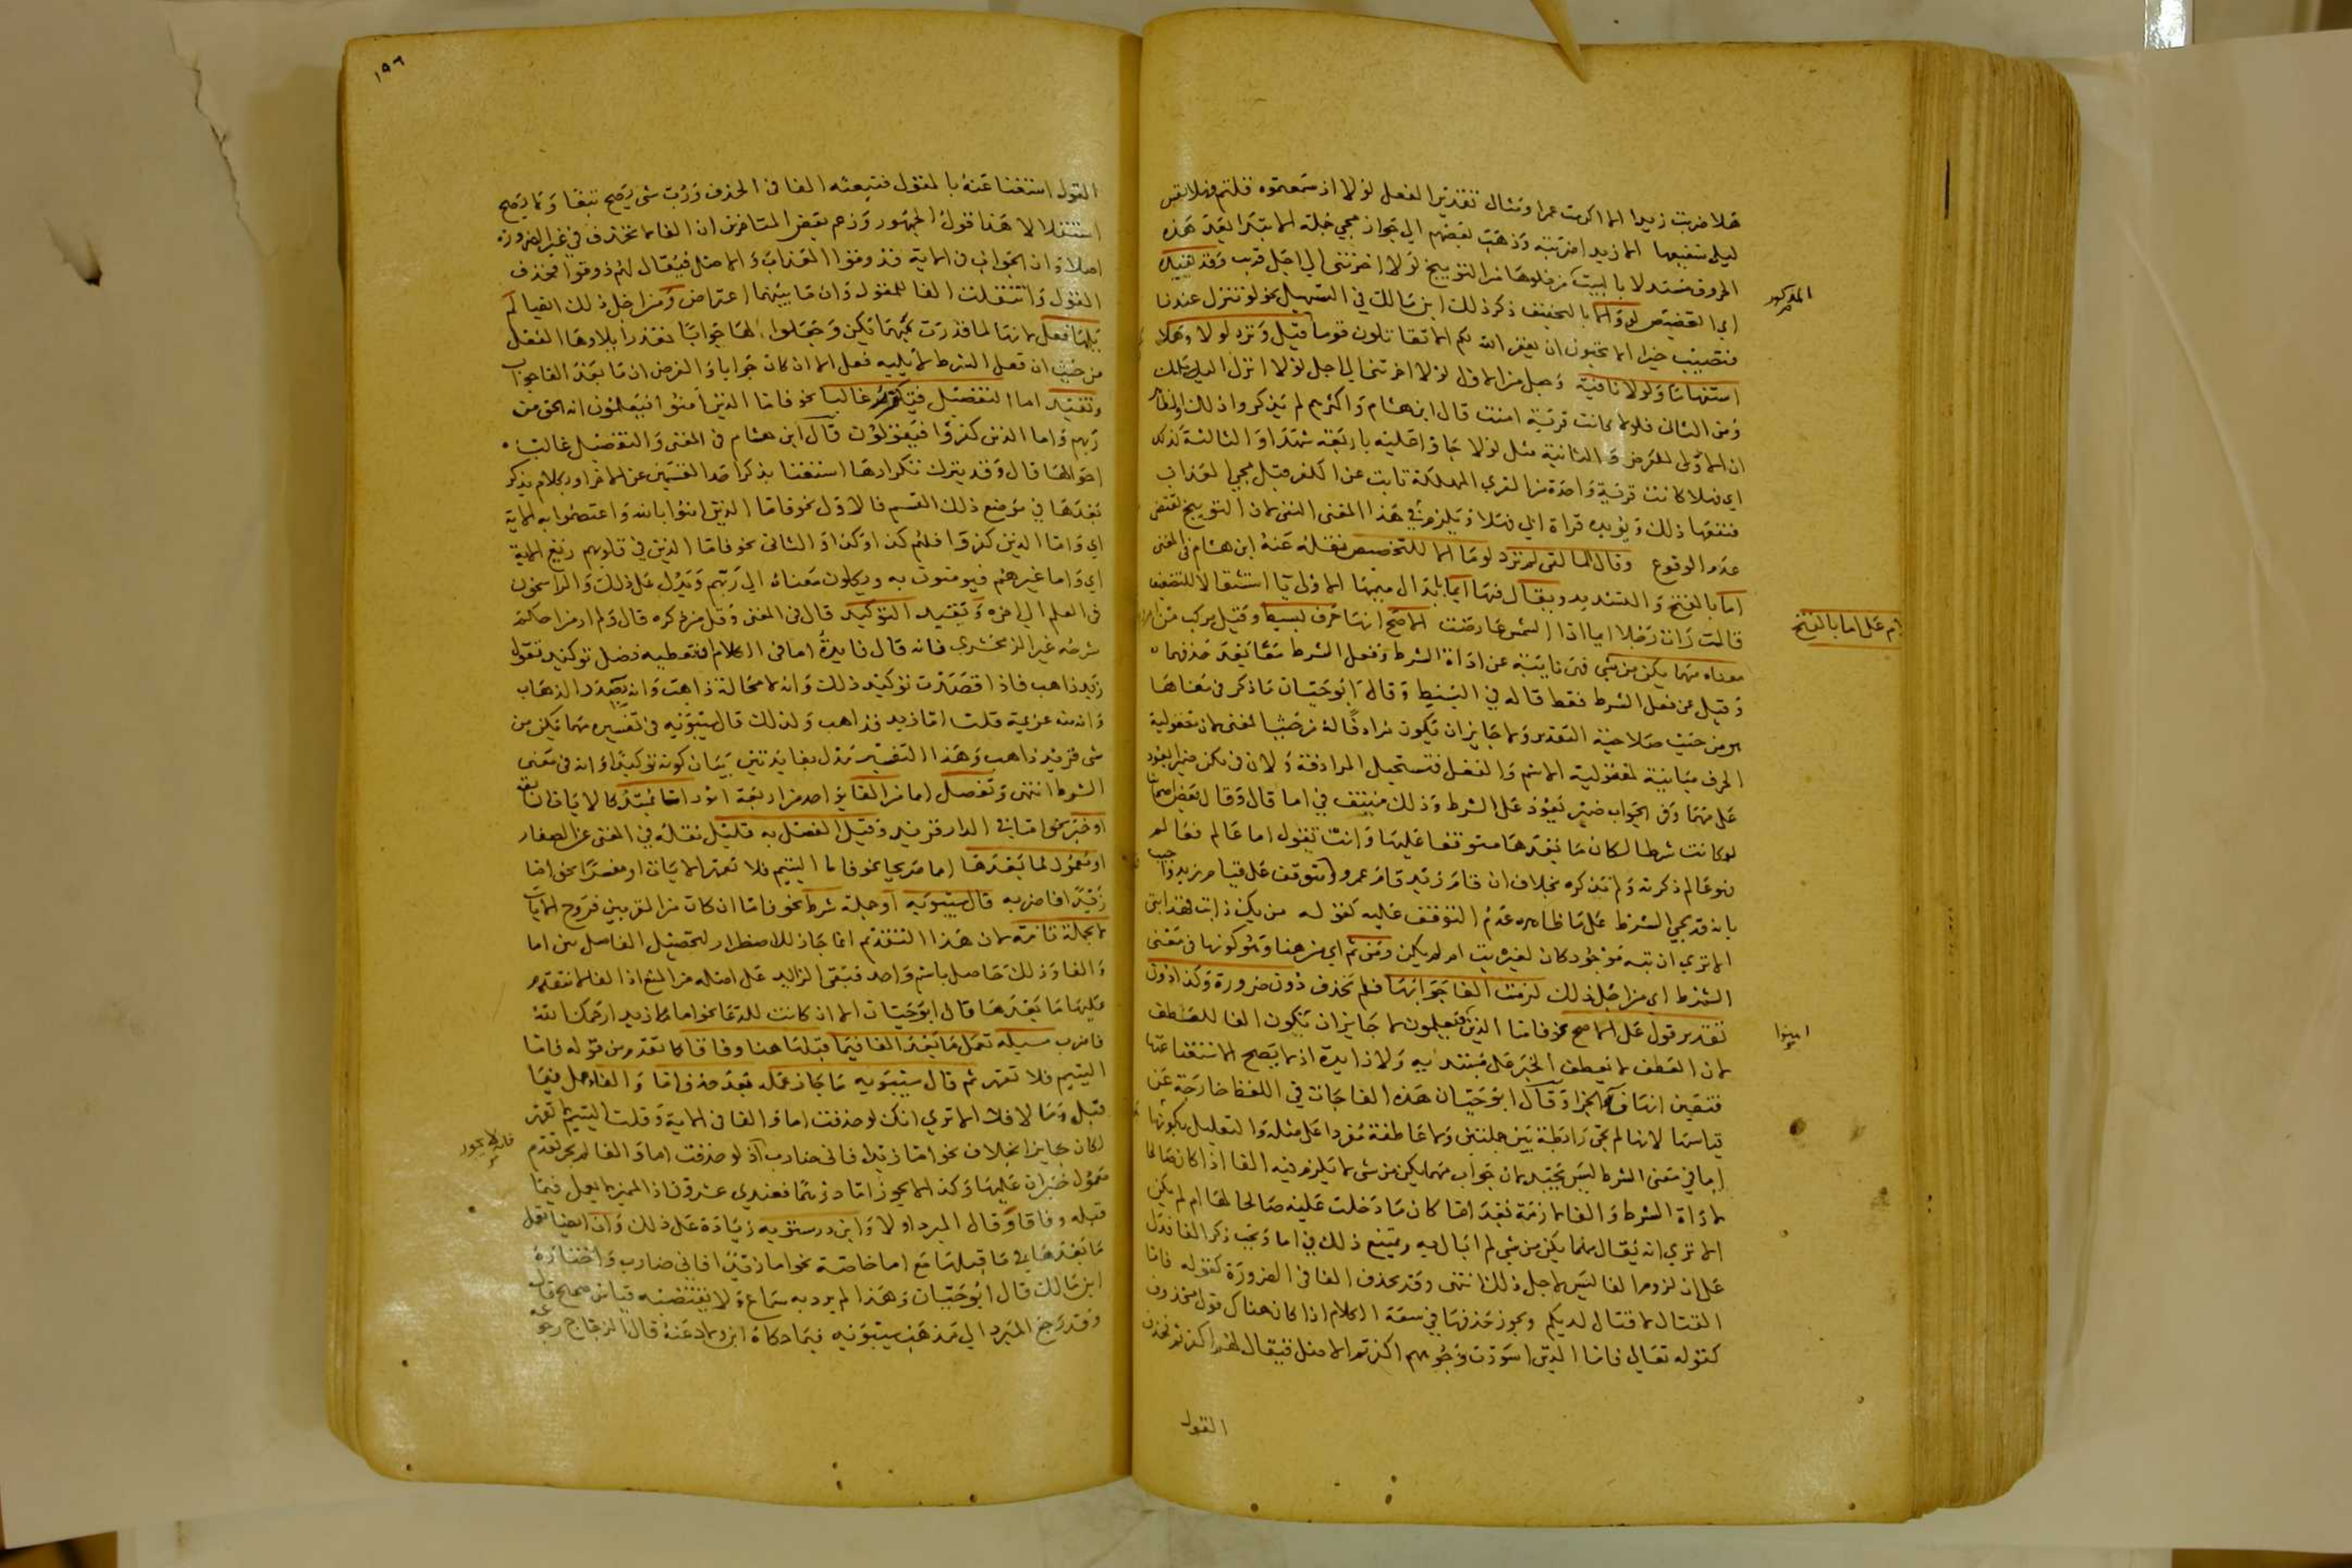 هلا ضربت زيدا الا اكرمت عمرا ومثال تقدير الفعل لولا اذ سمعتموه قلتم فهلا نفس
ليلى شفيعها الا زيدا ضربته وذهب بعضهم الى جواز مجي جملة الابتدا بعد هذه
الحروف مستدلا بالبيت لولا اخرتني الى اجل قريب وقد
اي التحضيض لو والا بالتخفيف ذكر ذلك ابن مالك في التسهيل نحو لو تنزل عندنا
المذكور
فتصيب خيرا الا تحبون ان يغفر الله لكم الا تقاتلون قوما قيل وترد لولا وهلا
استفهاما ولولا نافية وجعل من الاول لولا اخرتني الى اجل لولا انزل اليه ملك
ومن الثاني فلولا كانت قرية امنت قال ابن هشام واكثرهم لم يذكروا ذلك والظاهر
ان الاولى للعرض والثانية مثل لولا جاؤ عليه باربعة شهدا والثالثة كذلك
اي فهلا كانت قرية واحدة من القرى المهلكة تابت عن الكفر قبل مجي العذاب
فنفعها ذلك ويؤيده قراة ابي فهلا ويلزم في هذا المعنى النفي لان التوبيخ يقتضي
عدم الوقوع وقال المالقي لم ترد لوما الا للتحضيض نقله عنه ابن هشام في المغني
اما بالفتح والتشديد ويقال فيها ايما بابدال ميمها الاولى يا استثقالا للتضعيف
كلام على اما بالفتح
قالت رات رجلا ايما اذا الشمس عارضت الاصح انها حرف بسيط وقيل مركب من
معناه مهما يكن من شي فهي نايبة عن اداة الشرط وفعل الشرط معا بعد حذفهما
وقيل عن فعل الشرط فقط قاله في البسيط وقال ابو حيان ما ذكر في معناها
هو من حيث صلاحية التقدير ولا جايز ان يكون مرادفا له من حيث المعنى لان معقولية
الحرف مباينة لمعقولية الاسم والفعل فتستحيل المرادفة ولان في يكن ضميرا يعود
على مهما وفي الجواب ضمير يعود على الشرط وذلك منتف في اما قال وقال بعض اصحابنا
لو كانت شرطا لكان ما بعدها متوقفا عليها وانت تقول اما عالم فعالم
فهو عالم ذكرته ولم تذكره بخلاف ان قام زيد قام عمرو فتوقف على قيام زيد واجيب
بانه قد يجي الشرط على ما ظاهره عدم التوقف عليه كقوله من يك ذا بت فهذا بتي
الا ترى ان بته موجود كان لغيره بت ام لم يكن ومن ثم اي من هنا وهو كونها في معنى
الشرط اي من اجل ذلك لزمت الفا جوابها فلم تحذف دون ضرورة وكذا دون
تقدير قول على الاصح نحو فاما الذين فيعلمون لا جايز ان تكون الفا للعطف
امنوا
لان العطف لا يعطف الخبر على مبتدائه ولا زايدة اذ لا يصح الاستغنا عنها
فتعين انها فا الجزا وقال ابو حيان هذه الفا جات في اللفظ خارجة عن
قياسها لانها لم تجي رابطة بين جملتين ولا عاطفة مفردا على مثله والتعليل بكونها
اما في معنى الشرط ليس بجيد لان جواب مهما يكن من شي لا يلزم فيه الفا اذا كان صالحا
لاداة الشرط والفا لازمة بعد اما كان ما دخلت عليه صالحا لها ام لم يكن
الا ترى انه يقال مهما يكن من شي لم ابال به ويمتنع ذلك في اما ويجب ذكر الفا فدل
على ان لزوم الفا ليس لاجل ذلك انتهى وقد تحذف الفا في الضرورة كقوله فاما
القتال لا قتال لديكم ويجوز حذفها في سعة الكلام اذا كان هناك قول محذوف
كقوله تعالى فاما الذين اسودت وجوههم اكفرتم الاصل فيقال لهم اكفرتم فحذف
القول
١٩٦
القول استغنا عنه بالمقول فتبعته الفا في الحذف ورب شي يصح تبعا ولا يصح
استقلالا هذا قول الجمهور وزعم بعض المتاخرين ان الفا لا تحذف في غير الضرورة
اصلا وان الجواب في الاية فذوقوا العذاب والاصل فيقال لهم ذوقوا فحذف
القول وانتقلت الفا للمقول وان ما بينهما اعتراض ومن اجل ذلك ايضا لم
يلها فعل لانها لما قدرت بمهما يكن وجعلوا لها جوابا تعذر ايلاوها الفعل
من حيث ان فعل الشرط لا يليه فعل الا ان كان جوابا والفرض ان ما بعد الفا جواب
وتفيد اما التفصيل فيكرر غالبا نحو فاما الذين امنوا فيعلمون انه الحق من
ربهم واما الذين كفروا فيقولون قال ابن هشام في المغني والتفصيل غالب
احوالها قال وقد يترك تكرارها استغنا بذكر احد القسمين عن الاخر او بكلام يذكر
بعدها في موضع ذلك القسم فالاول نحو فاما الذين امنوا بالله واعتصموا به الاية
اي واما الذين كفروا فلهم كذا وكذا والثاني نحو فاما الذين في قلوبهم زيغ الاية
اي واما غيرهم فيومنون به ويكلون معناه الى ربهم ويدل على ذلك والراسخون
في العلم الى اخره وتفيد التوكيد قال في المغني وقل من ذكره قال ولم ار من احكم
شرحه غير الزمخشري فانه قال فايدة اما في الكلام ان تعطيه فضل توكيد تقول
زيد ذاهب فاذا قصدت توكيد ذلك وانه لا محالة ذاهب وانه بصدد الذهاب
وانه منه عزيمة قلت اما زيد فذاهب ولذلك قال سيبويه في تفسيره مهما يكن من
شي فزيد ذاهب وهذا التفسير مدل بفايدتين بيان كونه توكيدا وانه في معنى
الشرط انتهى وتفصل اما من الفا بواحد من اربعة امور اما مبتدا كالايات السابقة
او خبر نحو اما في الدار فزيد وقيل الفصل به قليل نقله في المغني عن الصفار
او معمول لما بعدها اما صريحا نحو فاما اليتيم فلا تقهر الايات او مفسرا نحو اما
زيدا فاضربه قال سيبويه او جملة شرط نحو فاما ان كان من المقربين فروح الايات
لا بجملة تامة لان هذا التقدم انما جاز للاضطرار لتحصيل الفاصل بين اما
والفا وذلك حاصل باسم واحد فبقي الزايد على اصله من المنع اذ الفا لا يتقدم
عليها ما بعدها قال ابو حيان الا ان كانت للدعا نحو اما زيدا رحمك الله
فاضرب مسيلة تعمل ما بعد الفا فيما قبلها هنا وفاقا كما تقدم من قوله فاما
اليتيم فلا تقهر ثم قال سيبويه ما جاز عمله بعد حذف اما والفا عمل فيما
قبل وما لا فلا الا ترى انك لو حذفت اما والفا في الاية وقلت اليتيم لا تقهر
لكان جايزا بخلاف نحو اما زيدا فاني ضارب اذ لو حذفت اما والفا لم يجز تقدم
فانه لا يجوز
معمول خبر ان عليها وكذا لا يجوز اما درهما فعندي عشرون اذ المميز لا يعمل فيما
قبله وفاقا وقال المبرد اولا وابن درستويه زيادة على ذلك وان ايضا تعمل
ما بعدها في ما قبلها مع اما خاصة نحو اما زيدا فاني ضارب واختاره
ابن مالك قال ابو حيان وهذا لم يرد به سماع ولا يقتضيه قياس صحيح قال
وقد رجع المبرد الى مذهب سيبويه فيما حكاه ابن ولاد عنه قال الزجاج رجوعه